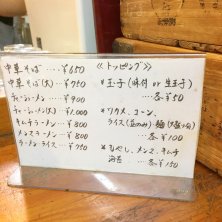 中華そば ‥‥ ¥650
中華そば(大) ‥‥ ¥750
チャーシューメン ‥‥ ¥900
チャーシューメン(大) ‥ ¥1,000
キムチラーメン ‥‥ ¥800
メンマラーメン ‥‥ ¥800
ラーメンライス ‥‥ ¥750
≪トッピング≫
*玉子(味付 or 生玉子)
‥‥各¥50
*ワカメ、コーン、
ライス(並のみ)・麺(大盛り)
‥‥各¥100
*もやし、メンマ、キムチ
海苔 ‥‥各¥150